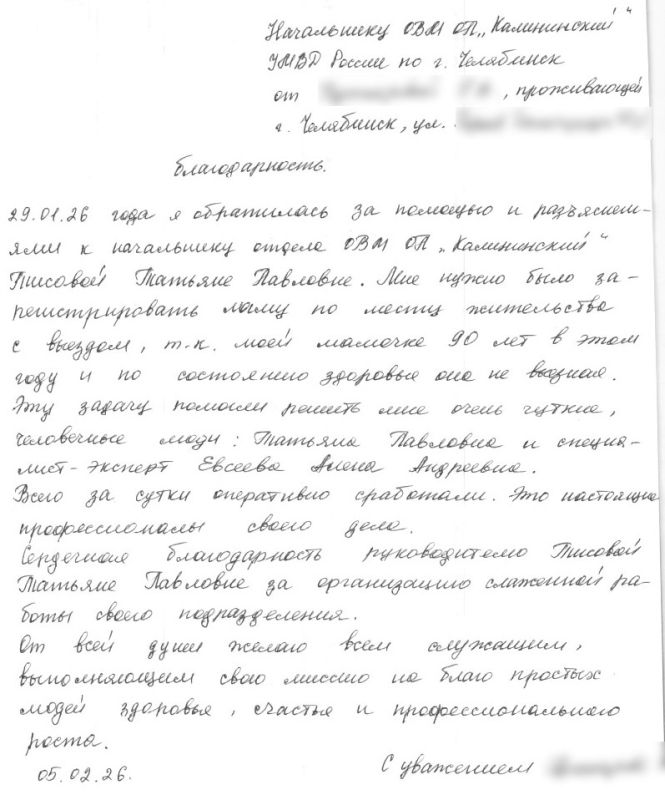 Начальнику ОВМ ОП „Калининский"
УМВД России по г. Челябинск
от , проживающей
г. Челябинск, ул.
благодарность.
29.01.26 года я обратилась за помощью и разъяснени-
ями к начальнику отдела ОВМ ОП „Калининский"
Тисовой Татьяне Павловне. Мне нужно было за-
регистрировать маму по месту жительства
с выездом, т.к. моей мамочке 90 лет в этом
году и по состоянию здоровья она не
Эту задачу помогли решить мне очень чуткие,
человечные люди: Татьяна Павловна и специа-
лист-эксперт Евсеева Алена Андреевна.
Всего за сутки оперативно сработали. Это настоящие
профессионалы своего дела.
Сердечная благодарность руководителю Тисовой
Татьяне Павловне за организацию слаженной ра-
боты своего подразделения.
От всей души желаю всем служащим,
выполняющим свою миссию на благо простых
людей здоровья, счастья и профессионального
роста.
05.02.26. С уважением